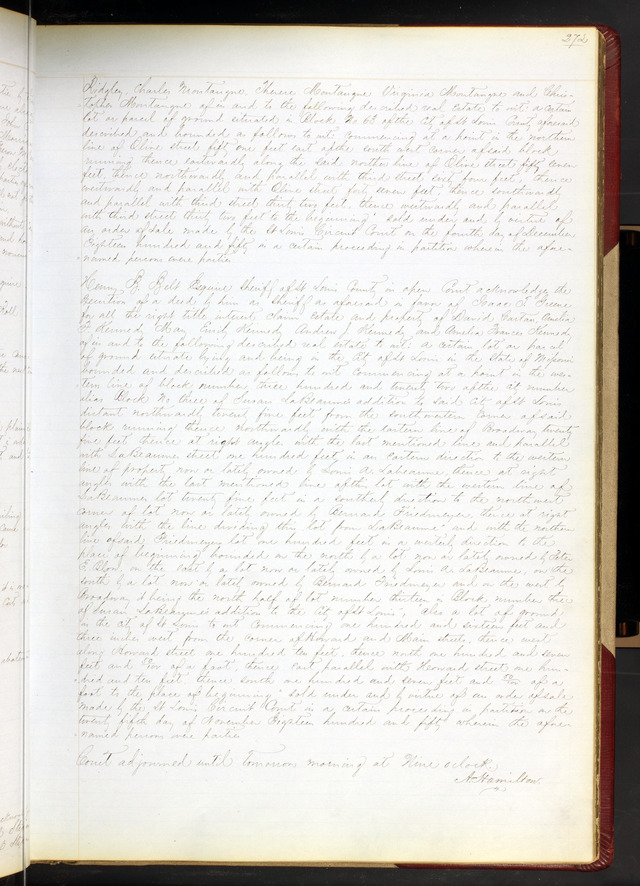 272
Ridgley, Charles Montaigne, Therese Montaigne Virginia Montaigne and Chris-
topher Montaigne of in and to the following described real estate to wit: a certain
lot or parcel of ground situated in Block No 63 of the City of St Louis County aforesaid
described and bounded as follows to wit: Commencing at a point in the northern
line of Olive street fifty one feet east of the south west corner of said block,
running thence eastwardly along the said northern line of Olive street fifty seven
feet, thence northwardly and parallel with third street sixty four feet, thence
westwardly and parallel with Olive street forty seven feet thence southwardly
and parallel with third street thirty two feet, thence westwardly and parallel
with third street thirty two feet to the beginning; sold under and by virtue of
an order of sale made by the St Louis Circuit Court on the fourth day of December
Eighteen hundred and fifty in a certain proceeding in partition wherein the afore-
named persons were parties
Henry B. Belt Esquire Sheriff of St Louis County, in open Court acknowledges the
Execution of a deed by him as Sheriff as aforesaid in favor of Isaac T. Greene
for all the right title interest claim estate and property of David Amelia
F. Kennedy Mary Kennedy Andrew J. Kennedy and Amelia Frances Kennedy
of in and to the following described real estate to wit: a certain lot or parcel
of ground situate lying and being in the City of St Louis in the State of Missouri
bounded and described as follows to wit Commencing at a point in the wes-
tern line of block number three hundred and twenty two of the City number
alias Block No three of Susan LaBeaume's addition to said City of St Louis
distant northwardly twenty five feet from the southwestern corner of said
block running thence Northwardly with the eastern line of Broadway twenty
five feet thence at right angles with the last mentioned line and parallel
with LaBeaume street one hundred feet in an Eastern direction to the western
line of property now or lately owned by Louis A. Labeaume, thence at right
angles with the last mentioned line of the lot with the western line of
LaBeaumes lot twenty five feet in a southerly direction to the northwest
corner of lot now or lately owned by Bernard Friedmeyer thence at right
angles with the line dividing this lot from LaBeaume's and with the northern
line of said Friedmeyers lot one hundred feet in a westerly direction to the
place of beginning bounded on the north by a lot now or lately owned by Peter
E. Blow, on the east by a lot now or lately owned by Louis A. LaBeaume, on the
south by a lot now or lately owned by Bernard Friedmeyer and on the west by
Broadway & being the north half of lot number thirteen in Block number three
of Susan LaBeaume's addition to the City of St Louis", also a lot of ground
in the City of St Louis to wit Commencing one hundred and sixteen feet and
three inches west from the corner of Howard and Main streets, thence west
along Howard street one hundred & ten feet, thence north one hundred and seven
feet and of a foot, thence East parallel with Howard street one hun-
dred and ten feet thence south one hundred and seven feet and of a
foot to the place of beginning; sold under and by virtue of an order of sale
made by the St Louis Circuit Court in a certain proceeding in partition on the
twenty fifth day of November Eighteen hundred and fifty wherein the afore-
named persons were parties
Court adjourned until tomorrow morning at Nine oclock.
A. Hamilton